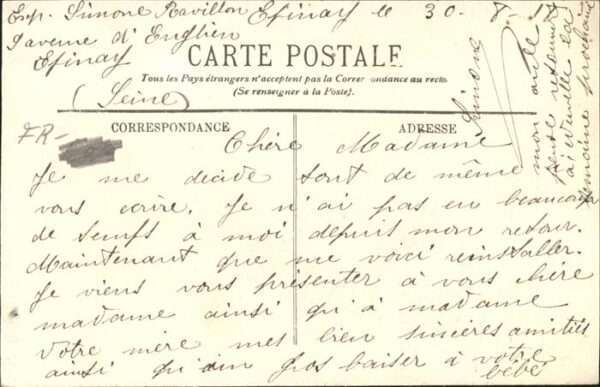 Exp. Simone Ravillon Epinay le 30-8-1
9 avenue d'Enghien
Epinay
(Seine)
CARTE POSTALE
Tous les Pays étrangers n'acceptent pas la Correspondance au recto
(Se renseigner à la Poste).
FR-
CORRESPONDANCE
ADRESSE
Chère Madame
Je me décide tout de même
vous écrire. Je n'ai pas eu beaucoup
de temps à moi depuis mon retour.
Maintenant que me voici reinstaller.
Je viens vous présenter à vous chère
madame ainsi qu'à madame
votre mère mes bien sincères amitiés
ainsi qu'un gros baiser à votre
bébé
Simone
mon adresse
semaine prochaine